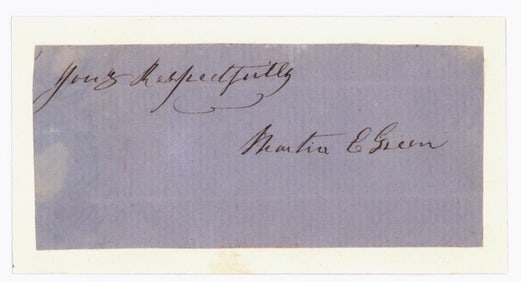 Yours Respectfully
Martin E Green